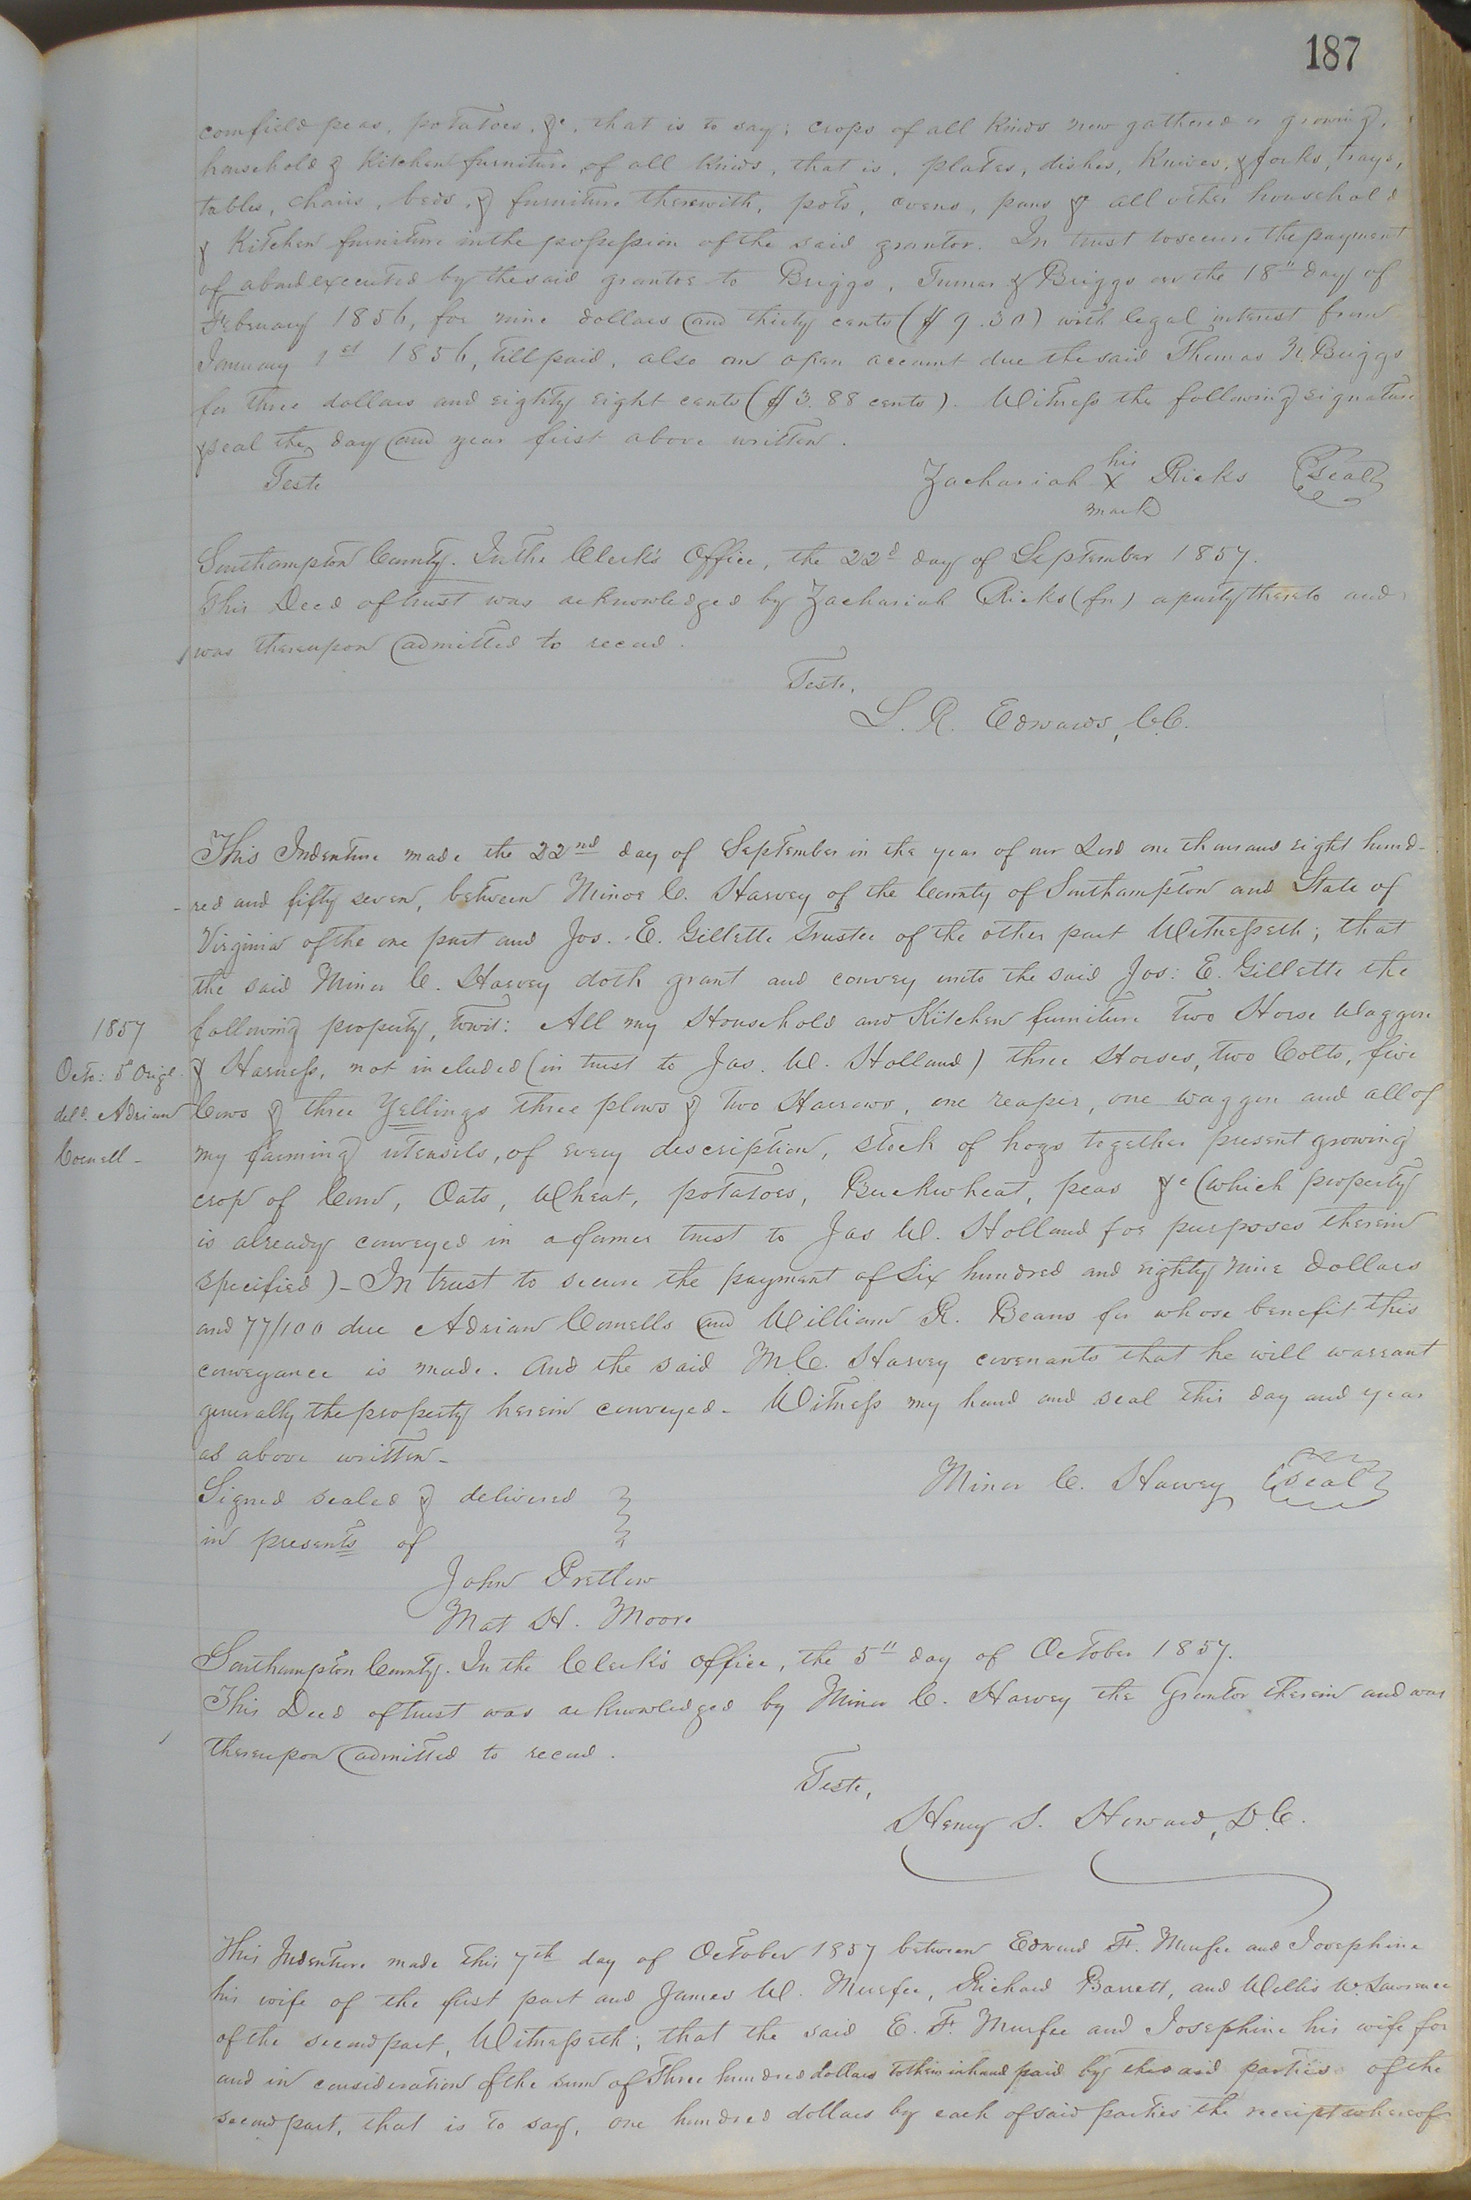 187
cornfield peas, potatoes, &c, that is to say; crops of all kinds now gathered or growing,
household & Kitchen furniture of all kinds, that is, plates, dishes, Knives, & forks, trays,
tables, chairs, beds, & furniture therewith, pots, ovens, pans & all other household
& Kitchen furniture in the possession of the said grantor. In trust to secure the payment
of a bond executed by the said grantor to Briggs, Turner & Briggs on the 18" day of
February 1856, for nine dollars and thirty cents ($9.30) with legal interest from
January 1st 1856, till paid, also an open account due the said Thomas Briggs
for three dollars and eighty eight cents ($3.88 cents). Witness the following signature
& seal the day and year first above written.
Teste
Zachariah his X mark Ricks Seal
Southampton County. In the Clerk's Office, the 22d day of September 1857.
This Deed of trust was acknowledged by Zachariah Ricks (fn) a party thereto and
was thereupon admitted to record.
Teste,
L. R. Edwards, C.C.
This Indenture made the 22nd day of September in the year of our Lord one thousand eight hund-
-red and fifty seven, between Minor C. Harvey of the County of Southampton and State of
Virginia of the one part and Jos. E. Gillette Trustee of the other part Witnesseth; that
the said Minor C. Harvey doth grant and convey unto the said Jos: E. Gillette the
following property, towit: All my Household and Kitchen furniture Two Horse Waggon
& Harness, not included (in trust to Jas. W. Holland) three Horses, Two Colts, five
Cows & three Yellings three plows & Two Harrows, one reaper, one waggon and all of
my farming utensils, of every description, stock of hogs together present growing
crop of Corn, Oats, Wheat, potatoes, Buckwheat, peas &c (which property
is already conveyed in a former trust to Jas W. Holland for purposes therein
specified) - In trust to secure the payment of Six hundred and eighty nine dollars
and 77/100 due Adrian Cornells and William R. Beans for whose benefit this
conveyance is made. And the said M.C. Harvey covenants that he will warrant
generally the property herein conveyed - Witness my hand and seal this day and year
as above written -
1857
Octo: 5 Origl.
deld. Adrian
Cornell -
Minor C. Harvey Seal
Signed sealed & delivered
in presents of
John Pretlow
Mat H. Moore
Southampton County. In the Clerk's office, the 5" day of October 1857.
This Deed of trust was acknowledged by Minor C. Harvey the Grantor therein and was
thereupon admitted to record.
Teste,
Henry S. Howard, D.C.
This Indenture made this 7th day of October 1857 between Edward F. Murfee and Josephine
his wife of the first part and James W. Murfee, Richard Barrett, and Willis W. Lawrence
of the second part, Witnesseth; that the said E. F. Murfee and Josephine his wife for
and in consideration of the sum of Three hundred dollars to them in hand paid by the said parties of the
second part, that is to say, one hundred dollars by each of said parties the receipt whereof